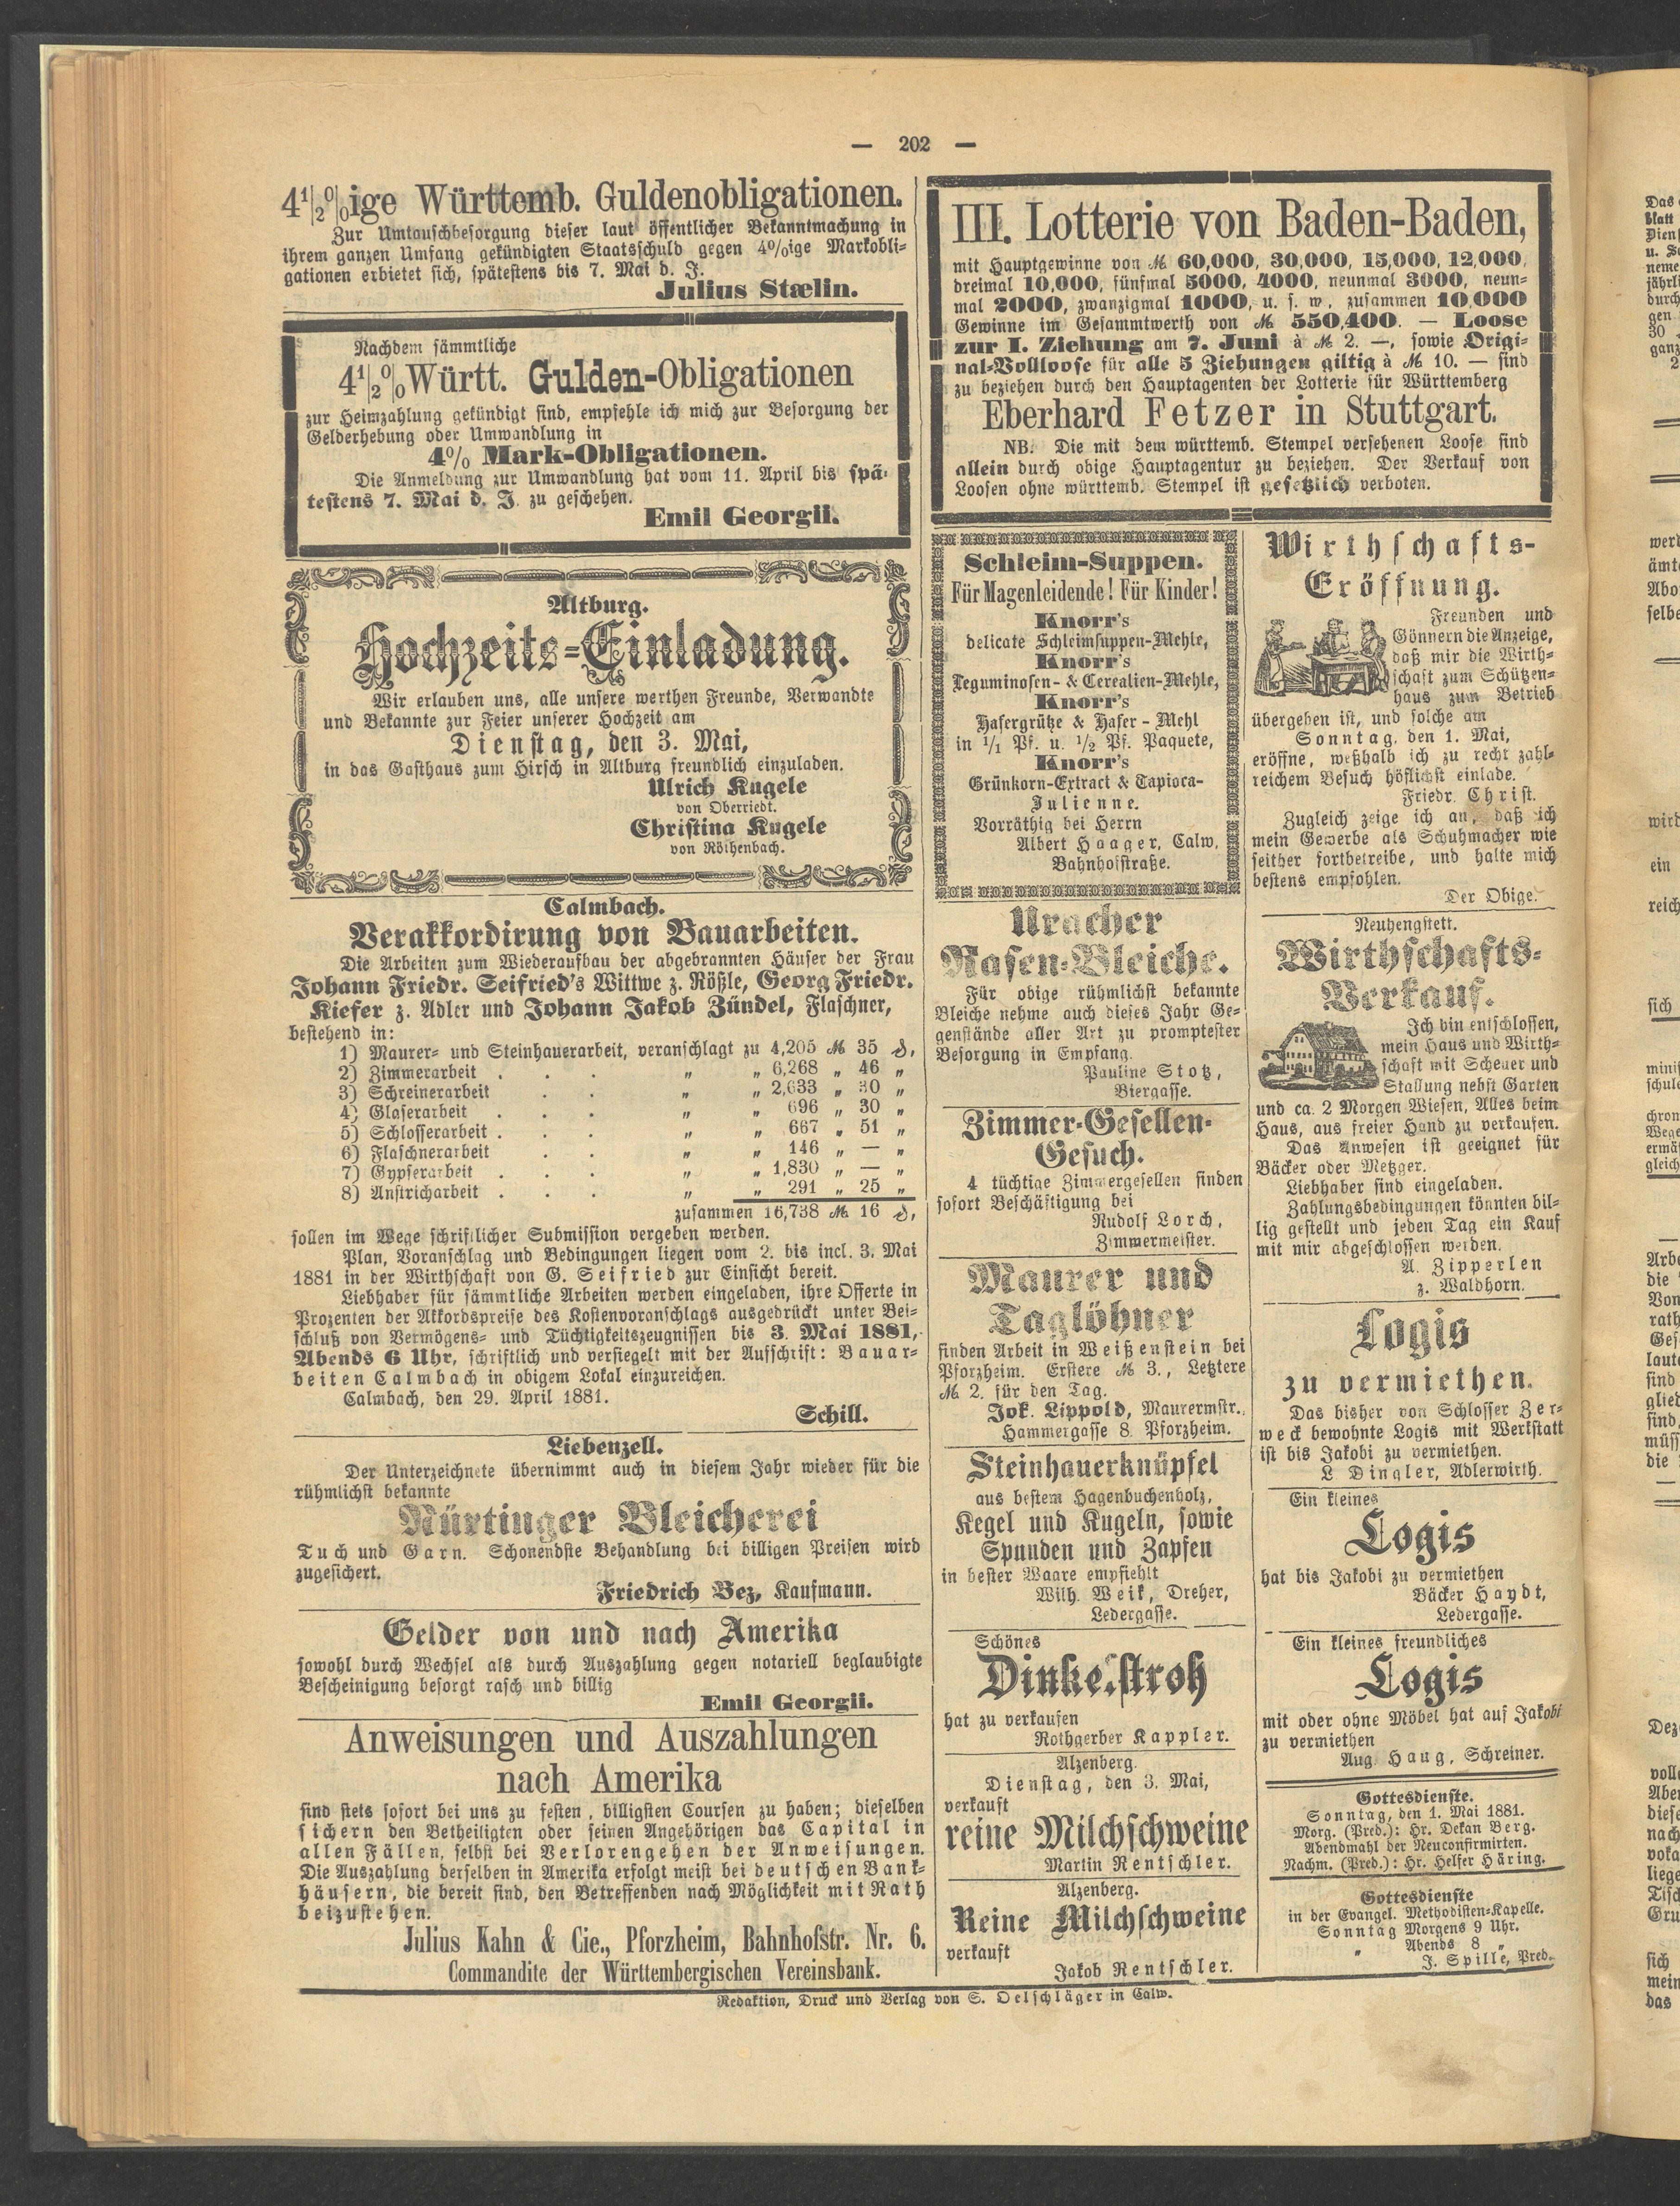 — 202 —
4½%ige Württemb. Guldenobligationen.
Zur Umtauschbesorgung dieser laut öffentlicher Bekanntmachung in
ihrem ganzen Umfang gekündigten Staatsschuld gegen 4%ige Markobli-
gationen erbietet sich, spätestens bis 7. Mai d. J.
Julius Stælin.
Nachdem sämmtliche
4½% Württ. Gulden-Obligationen
zur Heimzahlung gekündigt sind, empfehle ich mich zur Besorgung der
Gelderhebung oder Umwandlung in
4% Mark-Obligationen.
Die Anmeldung zur Umwandlung hat vom 11. April bis spä-
testens 7. Mai d. J. zu geschehen.
Emil Georgii.
Altburg.
Hochzeits-Einladung.
Wir erlauben uns, alle unsere werthen Freunde, Verwandte
und Bekannte zur Feier unserer Hochzeit am
Dienstag, den 3. Mai,
in das Gasthaus zum Hirsch in Altburg freundlich einzuladen.
Ulrich Kugele
von Oberriedt.
Christina Kugele
von Röthenbach.
Calmbach.
Verakkordirung von Bauarbeiten.
Die Arbeiten zum Wiederaufbau der abgebrannten Häuser der Frau
Johann Friedr. Seifried's Wittwe z. Rößle, Georg Friedr.
Kiefer z. Adler und Johann Jakob Zündel, Flaschner,
bestehend in:
1) Maurer- und Steinhauerarbeit, veranschlagt zu 4,205 ℳ 35 ₰,
2) Zimmerarbeit . . . „ „ 6,268 „ 46 „
3) Schreinerarbeit . . „ „ 2,633 „ 30 „
4) Glaserarbeit . . . „ „ 696 „ 30 „
5) Schlosserarbeit . . . „ „ 667 „ 51 „
6) Flaschnerarbeit . . „ „ 146 „ — „
7) Gypserarbeit . . . „ „ 1,830 „ — „
8) Anstricharbeit . . . „ „ 291 „ 25 „
zusammen 16,738 ℳ 16 ₰,
sollen im Wege schriftlicher Submission vergeben werden.
Plan, Voranschlag und Bedingungen liegen vom 2. bis incl. 3. Mai
1881 in der Wirthschaft von G. Seifried zur Einsicht bereit.
Liebhaber für sämmtliche Arbeiten werden eingeladen, ihre Offerte in
Prozenten der Akkordspreise des Kostenvoranschlags ausgedrückt unter Bei-
schluß von Vermögens- und Tüchtigkeitszeugnissen bis 3. Mai 1881,
Abends 6 Uhr, schriftlich und versiegelt mit der Aufschrift: Bauar-
beiten Calmbach in obigem Lokal einzureichen.
Calmbach, den 29. April 1881.
Schill.
Liebenzell.
Der Unterzeichnete übernimmt auch in diesem Jahr wieder für die
rühmlichst bekannte
Nürtinger Bleicherei
Tuch und Garn. Schonendste Behandlung bei billigen Preisen wird
zugesichert.
Friedrich Bez, Kaufmann.
Gelder von und nach Amerika
sowohl durch Wechsel als durch Auszahlung gegen notariell beglaubigte
Bescheinigung besorgt rasch und billig
Emil Georgii.
Anweisungen und Auszahlungen
nach Amerika
sind stets sofort bei uns zu festen, billigsten Coursen zu haben; dieselben
sichern den Betheiligten oder seinen Angehörigen das Capital in
allen Fällen, selbst bei Verlorengehen der Anweisungen.
Die Auszahlung derselben in Amerika erfolgt meist bei deutschen Bank-
häusern, die bereit sind, den Betreffenden nach Möglichkeit mit Rath
beizustehen.
Julius Kahn & Cie., Pforzheim, Bahnhofstr. Nr. 6.
Commandite der Württembergischen Vereinsbank.
III. Lotterie von Baden-Baden,
mit Hauptgewinne von ℳ 60,000, 30,000, 15,000, 12,000,
dreimal 10,000, fünfmal 5000, 4000, neunmal 3000, neun-
mal 2000, zwanzigmal 1000, u. s. w, zusammen 10,000
Gewinne im Gesammtwerth von ℳ 550,400. — Loose
zur I. Ziehung am 7. Juni à ℳ 2. —, sowie Origi-
nal-Vollloose für alle 5 Ziehungen giltig à ℳ 10. — sind
zu beziehen durch den Hauptagenten der Lotterie für Württemberg
Eberhard Fetzer in Stuttgart.
NB. Die mit dem württemb. Stempel versehenen Loose sind
allein durch obige Hauptagentur zu beziehen. Der Verkauf von
Loosen ohne württemb. Stempel ist gesetzlich verboten.
Schleim-Suppen.
Für Magenleidende! Für Kinder!
Knorr's
delicate Schleimsuppen-Mehle,
Knorr's
Leguminosen- & Cerealien-Mehle,
Knorr's
Hafergrütze & Hafer-Mehl
in 1/1 Pf. u. 1/2 Pf. Paquete,
Knorr's
Grünkorn-Extract & Tapioca-
Julienne.
Vorräthig bei Herrn
Albert Haager, Calw,
Bahnhofstraße.
Uracher
Rasen-Bleiche.
Für obige rühmlichst bekannte
Bleiche nehme auch dieses Jahr Ge-
genstände aller Art zu promptester
Besorgung in Empfang.
Pauline Stotz,
Biergasse.
Zimmer-Gesellen-
Gesuch.
4 tüchtige Zimmergesellen finden
sofort Beschäftigung bei
Rudolf Lorch,
Zimmermeister.
Maurer und
Taglöhner
finden Arbeit in Weißenstein bei
Pforzheim. Erstere ℳ 3., Letztere
ℳ 2. für den Tag.
Jok. Lippold, Maurermstr.,
Hammergasse 8. Pforzheim.
Steinhauerknüpfel
aus bestem Hagenbuchenholz,
Kegel und Kugeln, sowie
Spunden und Zapfen
in bester Waare empfiehlt
Wilh. Weik, Dreher,
Ledergasse.
Schönes
Dinkelstroh
hat zu verkaufen
Rothgerber Kappler.
Alzenberg.
Dienstag, den 3. Mai,
verkauft
reine Milchschweine
Martin Rentschler.
Alzenberg.
Reine Milchschweine
verkauft
Jakob Rentschler.
Wirthschafts-
Eröffnung.
Freunden und
Gönnern die Anzeige,
daß mir die Wirth-
schaft zum Schützen-
haus zum Betrieb
übergeben ist, und solche am
Sonntag, den 1. Mai,
eröffne, weßhalb ich zu recht zahl-
reichem Besuch höflichst einlade.
Friedr. Christ.
Zugleich zeige ich an, daß ich
mein Gewerbe als Schuhmacher wie
seither fortbetreibe, und halte mich
bestens empfohlen.
Der Obige.
Neuhengstett.
Wirthschafts-
Verkauf.
Ich bin entschlossen,
mein Haus und Wirth-
schaft mit Scheuer und
Stallung nebst Garten
und ca. 2 Morgen Wiesen, Alles beim
Haus, aus freier Hand zu verkaufen.
Das Anwesen ist geeignet für
Bäcker oder Metzger.
Liebhaber sind eingeladen.
Zahlungsbedingungen könnten bil-
lig gestellt und jeden Tag ein Kauf
mit mir abgeschlossen werden.
A. Zipperlen
z. Waldhorn.
Logis
zu vermiethen.
Das bisher von Schlosser Zer-
weck bewohnte Logis mit Werkstatt
ist bis Jakobi zu vermiethen.
L. Dingler, Adlerwirth.
Ein kleines
Logis
hat bis Jakobi zu vermiethen
Bäcker Haydt,
Ledergasse.
Ein kleines freundliches
Logis
mit oder ohne Möbel hat auf Jakobi
zu vermiethen
Aug. Haug, Schreiner.
Gottesdienste.
Sonntag, den 1. Mai 1881.
Morg. (Pred.): Hr. Dekan Berg.
Abendmahl der Neuconfirmirten.
Nachm. (Pred.): Hr. Helfer Häring.
Gottesdienste
in der Evangel. Methodisten-Kapelle.
Sonntag Morgens 9 Uhr.
„ Abends 8 „
J. Spille, Pred.
Redaktion, Druck und Verlag von S. Oelschläger in Calw.